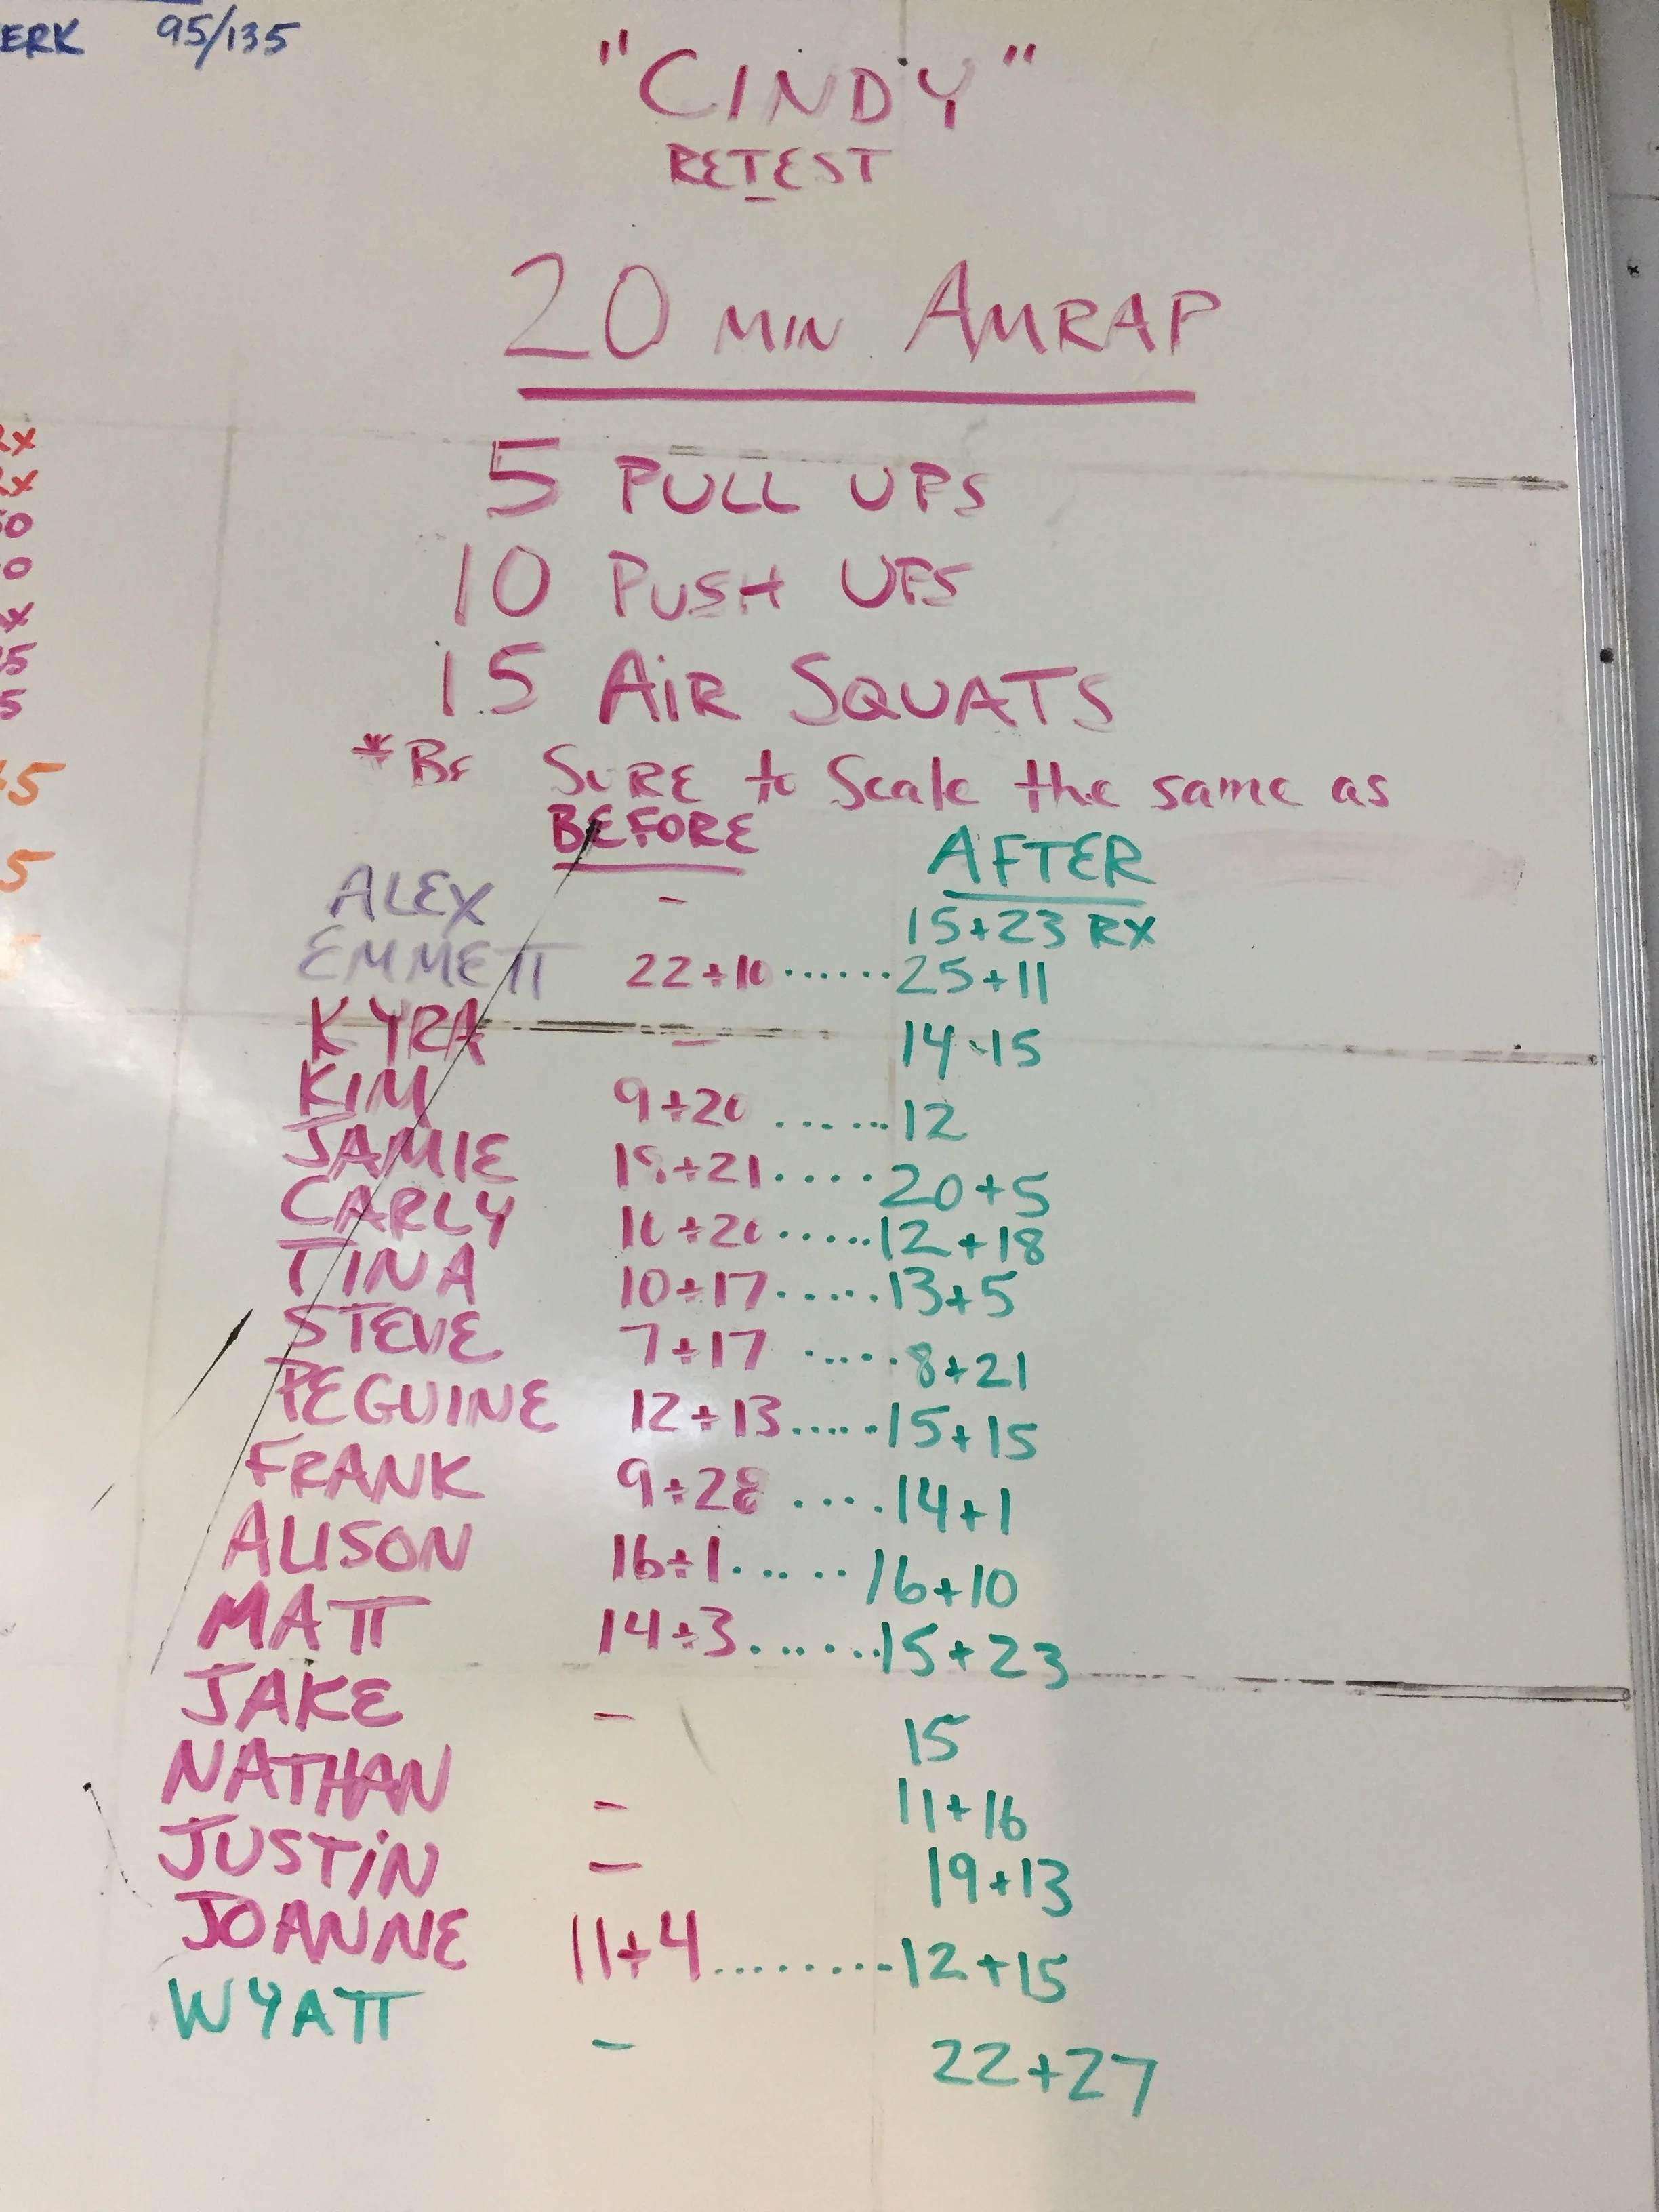 ERK 95/135
"CINDY"
RETEST
20 MIN AMRAP
5 PULL UPS
10 PUSH UPS
15 AIR SQUATS
*BE SURE to Scale the same as
BEFORE AFTER
ALEX - 15+23 RX
EMMETT 22+10......25+11
KYRA - 14+15
KIM 9+20......12
JAMIE 18+21....20+5
CARLY 10+20.....12+18
TINA 10+17.....13+5
STEVE 7+17.....8+21
PEGUINE 12+13.....15+15
FRANK 9+28....14+1
ALISON 16+1......16+10
MATT 14+3......15+23
JAKE - 15
NATHAN - 11+16
JUSTIN - 19+13
JOANNE 11+4.........12+15
WYATT - 22+27